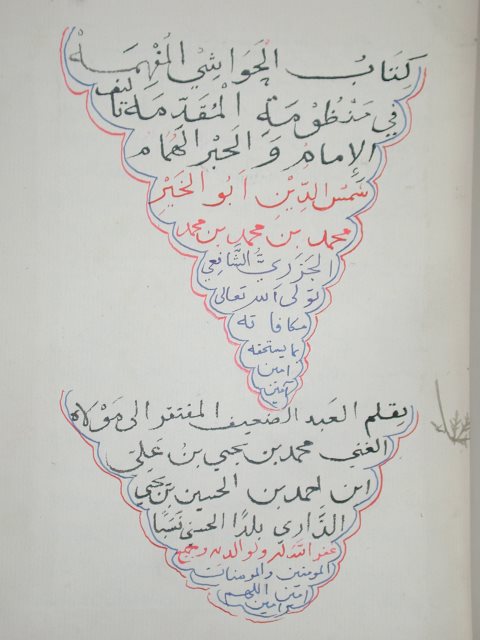 كِتَابُ الْحَوَاشِي الْمُفْهِمَةْ
في مَنْظُوْمَةِ الْمُقَدِّمَة تاليف
الإمام وَ الحَبْر الهُمام
شَمْسُ الدِّيْنِ أَبُو الخَيْرِ
محمد بن محمد بن محمد
الجَزَرِيُّ الشَّافِعِي
تولى الله تعالى
مكافاته
بما يستحقه
امين
آمين
بقلم العبد الضعيف المفتقر الى مَوْلاه
الغني محمد بن يحيي بن علي
ابن احمد بن الحسين بن يحيى
الذَّاري بلدًا الحسني نَسَبًا
غفر الله له ولوالديه وجميع
المومنين والمومنات
امين اللهم
امين